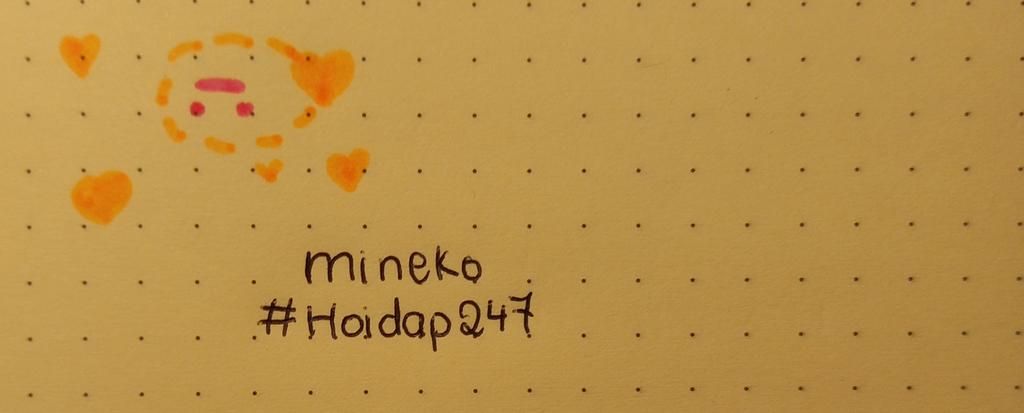 mineko
#Hoidap247